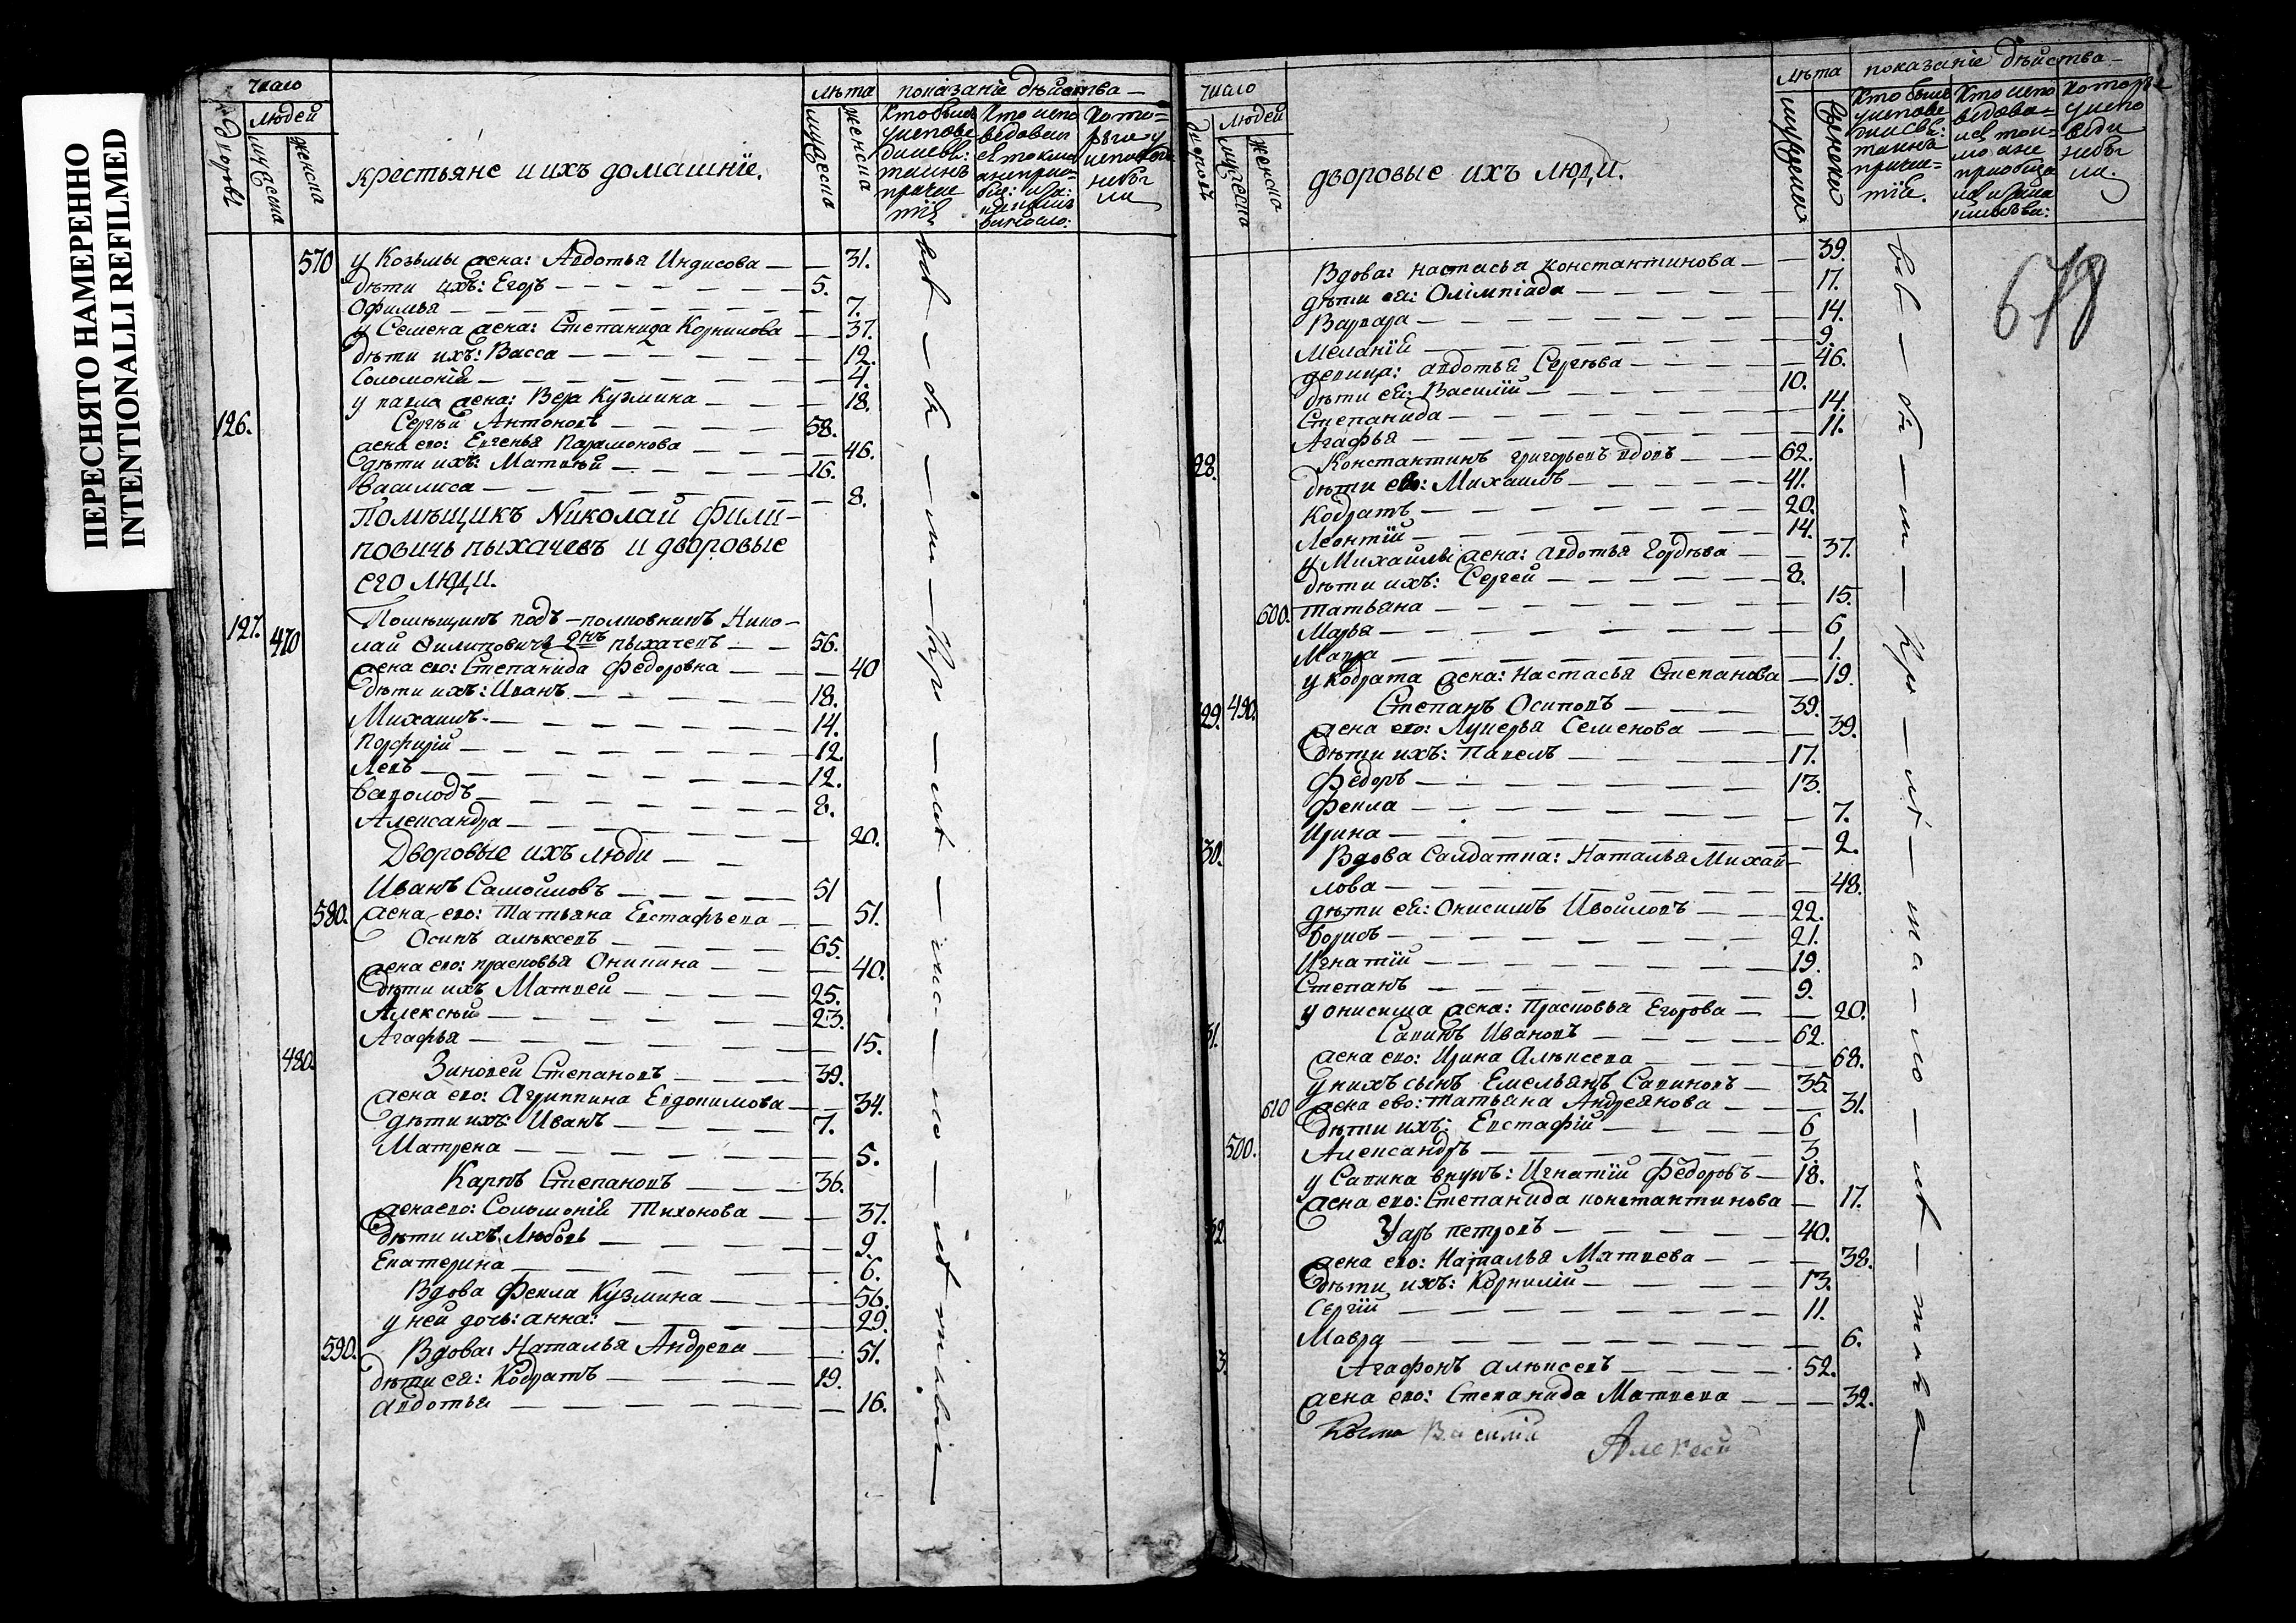 ПЕРЕСНЯТО НАМЕРЕННО
INTENTIONALLI REFILMED
число
людей
дворовъ
мужеска
женска
крестьяне и ихъ домашнїе.
лѣта
мужеска
женска
показанїе дѣйства
570 у Козьмы жена: Авдотья — 31.
дѣти ихъ: Егоръ — 5.
Офимья — 7.
у Семена жена: Степанида Корнилова — 37.
дѣти ихъ: Васса — 12.
Соломонїя — 4.
у павла жена: Вера Кузмина — 18.
126. Сергѣй Антоновъ — 58.
жена ево: Евгенья Парамонова — 46.
дѣти ихъ: Матвѣй — 16.
Василиса — 8.
Помѣщикъ Николай фили-
повичь пыхачевъ и дворовые
его люди.
127. Помѣщикъ подъ-полковникъ Нико-
470 лай Филиповичъ пыхачевъ — 56.
жена ево: Степанида Федоровна — 40
дѣти ихъ: Иванъ — 18.
Михаилъ — 14.
Порфирїй — 12.
Левъ — 12.
Всеволодъ — 8.
Александра — 20.
Дворовые ихъ люди —
Иванъ Самойловъ — 51
580. жена ево: Татьяна Евстафьева — 51.
Осипъ алѣксевъ — 65.
жена ево: прасковья Оникина — 40.
дѣти ихъ Матвей — 25.
Алексѣй — 23.
Агафья — 15.
480. Зиновей Степановъ — 39.
жена ево: Агриппина Евдокимова — 34.
дѣти ихъ: Иванъ — 7.
Матрена — 5.
Карпъ Степановъ — 36.
жена ево: Соломонїя Тихонова — 37.
дѣти ихъ: Любовь — 9.
Екатерина — 6.
Вдова Фекла Кузмина — 56.
у ней дочь: анна: — 29.
590. Вдова: Наталья Андрева — 51.
дѣти ея: Кодратъ — 19.
авдотья — 16.
число
людей
дворовъ
мужеска
женска
дворовые ихъ люди.
лѣта
мужеска
женска
показанїе дѣйства
678
Вдова: настасья константинова — 39.
дѣти ея: Олімпіада — 17.
Варвара — 14.
Меланїя — 9.
девица: авдотья Сергѣва — 46.
дѣти ея: Василїй — 10.
Степанида — 14.
Агафья — 11.
28. Константинъ григорьевъ вдовъ — 62.
дѣти ево: Михаилъ — 41.
Кодратъ — 20.
Леонтїй — 14.
у Михайлы жена: авдотья Гордѣва — 37.
дѣти ихъ: Сергей — 8.
600. татьяна — 15.
Марья — 6
Мавра — 1.
у кодрата жена: Настасья Степанова — 19.
29. 490. Степанъ Осиповъ — 39.
жена ево: Лукерья Семенова — 39.
дѣти ихъ: Павелъ — 17.
Федоръ — 13.
Фекла — 7.
Ирина — 2.
30. Вдова Салдатка: Наталья Михай-
лова — 48.
дѣти ея: Онисимъ Ивойловъ — 22.
Борисъ — 21.
Игнатїй — 19.
Степанъ — 9.
у онисима жена: Прасковья Егорова — 20.
31. Савинъ Ивановъ — 62.
жена ево: Ирина Алѣксева — 68.
у нихъ сынъ Емельянъ Савиновъ — 35.
610 жена ево: татьяна Андреянова — 31.
дѣти ихъ: Евстафїй — 6
500. Александръ — 3.
у Савина внукъ: Игнатїй Федоровъ — 18.
жена ево: Степанида константинова — 17.
32. Уаръ петровъ — 40.
жена ево: Наталья Матвева — 38.
дѣти ихъ: Корнилїй — 13.
Сергїй — 11.
Мавра — 6.
3. Агафонъ алѣксевъ — 52.
жена ево: Степанида Матвева — 32.
Василїй Алексей